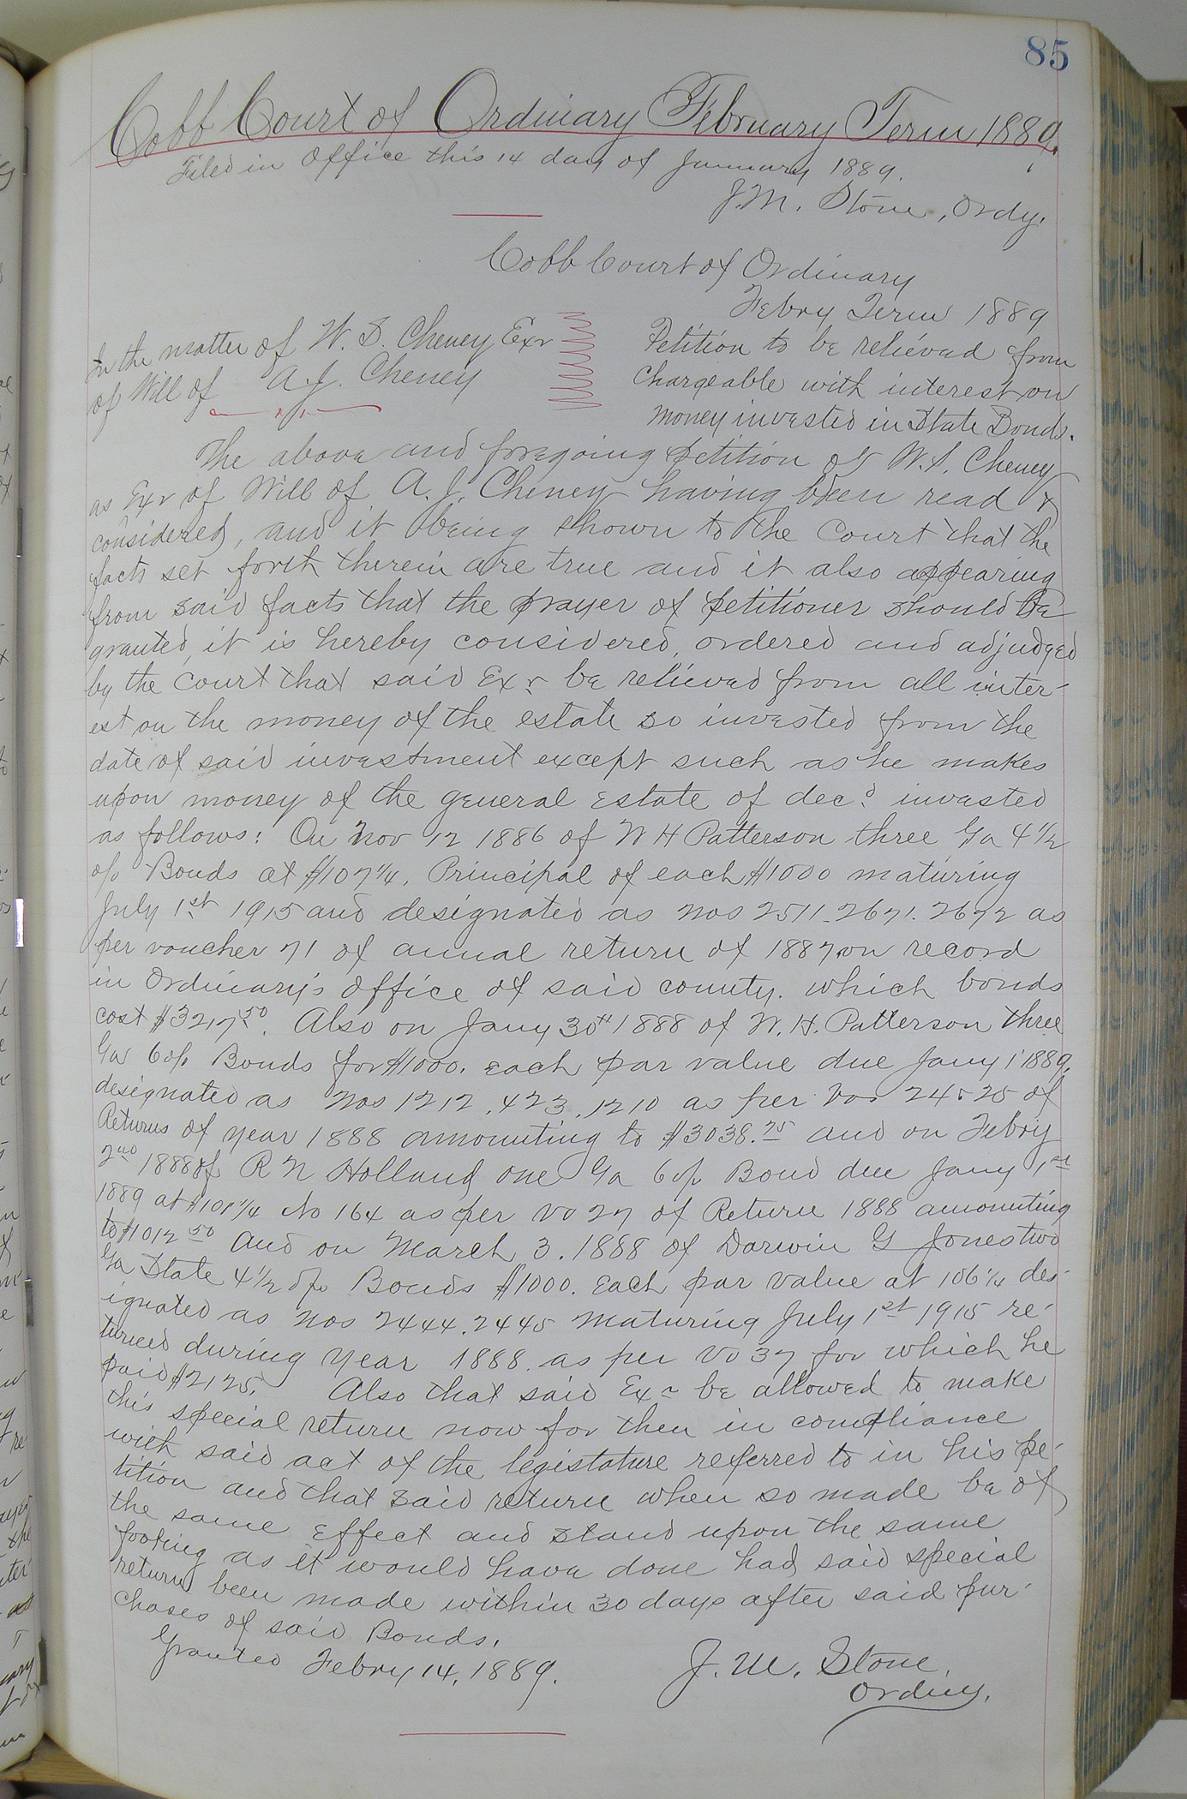 85
Cobb Court of Ordinary February Term 1889.
Filed in Office this 14 day of January 1889.
J.M. Stone, Ordy.
Cobb Court of Ordinary
Febry Term 1889
In the matter of W. S. Cheney Exr
of Will of A. J. Cheney
Petition to be relieved from
chargeable with interest on
money invested in State Bonds.
The above and foregoing petition of W. S. Cheney
as Exr of Will of A. J. Cheney having been read &
considered, and it being shown to the Court that the
facts set forth therein are true and it also appearing
from said facts that the prayer of petitioner should be
granted, it is hereby considered, ordered and adjudged
by the Court that said Exr be relieved from all inter-
est on the money of the estate so invested from the
date of said investment except such as he makes
upon money of the general estate of decd invested
as follows: On Nov 12 1886 of W H Patterson three Ga 4 1/2
o/o Bonds at $107 1/4. Principal of each $1000 maturing
July 1st 1915 and designated as Nos 2511. 2671. 2672 as
per voucher 71 of annual return of 1887 on record
in Ordinary's Office of said county. which bonds
cost $3217.50. Also on Jany 30th 1888 of W. H. Patterson three
Ga 6 o/o Bonds for $1000. each par value due Jany 1' 1889.
designated as Nos 1212, 423, 1210 as per Vos 24 & 25 of
Returns of year 1888 amounting to $3038.75 and on Febry
2nd 1888 of R N Holland one Ga 6 o/o Bond due Jany 1st
1889 at $101 1/4 No 164 as per Vo 27 of Return 1888 amounting
to $1012 50 and on March 3. 1888 of Darwin G Jones two
Ga State 4 1/2 o/o Bonds $1000. Each par value at 106 1/4 des-
ignated as Nos 2444. 2445 maturing July 1st 1915 re-
turned during year 1888. as per Vo 37 for which he
paid $2125. Also that said Exr be allowed to make
this special return now for then in compliance
with said act of the legislature referred to in his pe-
tition and that said return when so made be of
the same effect and stand upon the same
footing as it would have done had said special
return been made within 30 days after said pur-
chases of said Bonds.
Granted Febry 14, 1889.
J. M. Stone,
Ordiny.